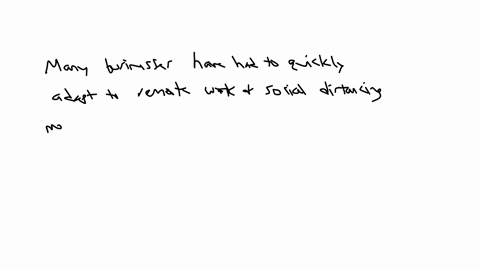 Many businesses have had to quickly
adapt to remote work & social distancing
mo